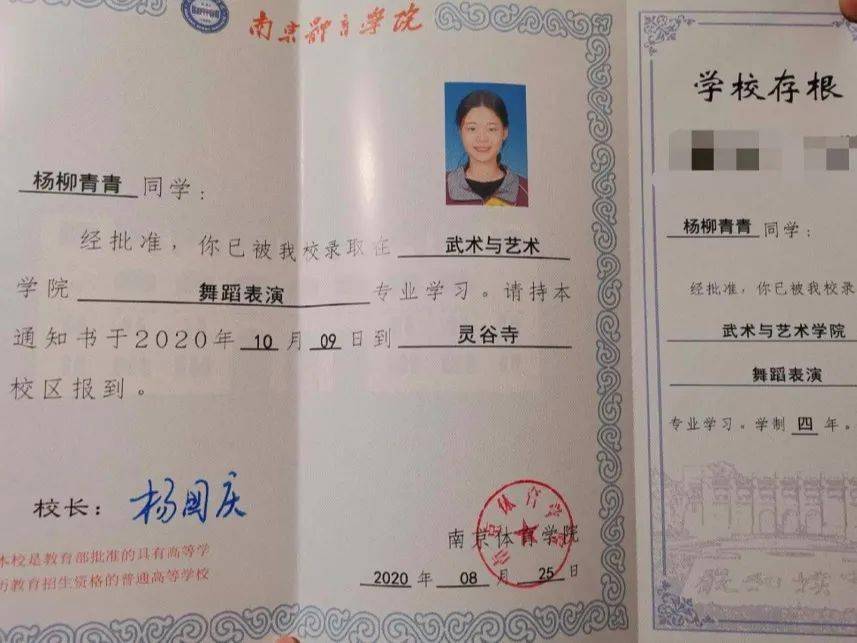 南京体育学院
杨柳青青 同学：
经批准，你已被我校录取在 武术与艺术
学院 舞蹈表演 专业学习。请持本
通知书于2020年 10 月 09 日到 灵谷寺
校区报到。
校长： 杨国庆
本校是教育部批准的具有高等学
历教育招生资格的普通高等学校
南京体育学院
2020 年 08 月 25 日
学校存根
杨柳青青 同学：
经批准，你已被我校录
武术与艺术学院
舞蹈表演
专业学习。学制 四 年。